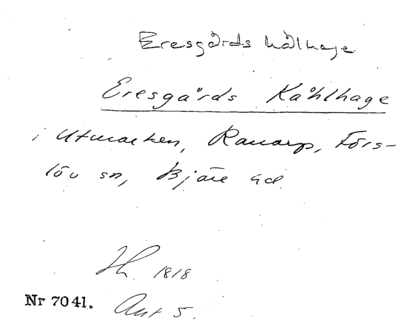 Eresgårds kålhage
Eresgårds Kåhlhage
i Utmarken, Ranarp, Förs-
löv sn, Bjäre hd
1818
Nr 7041. Akt 5.